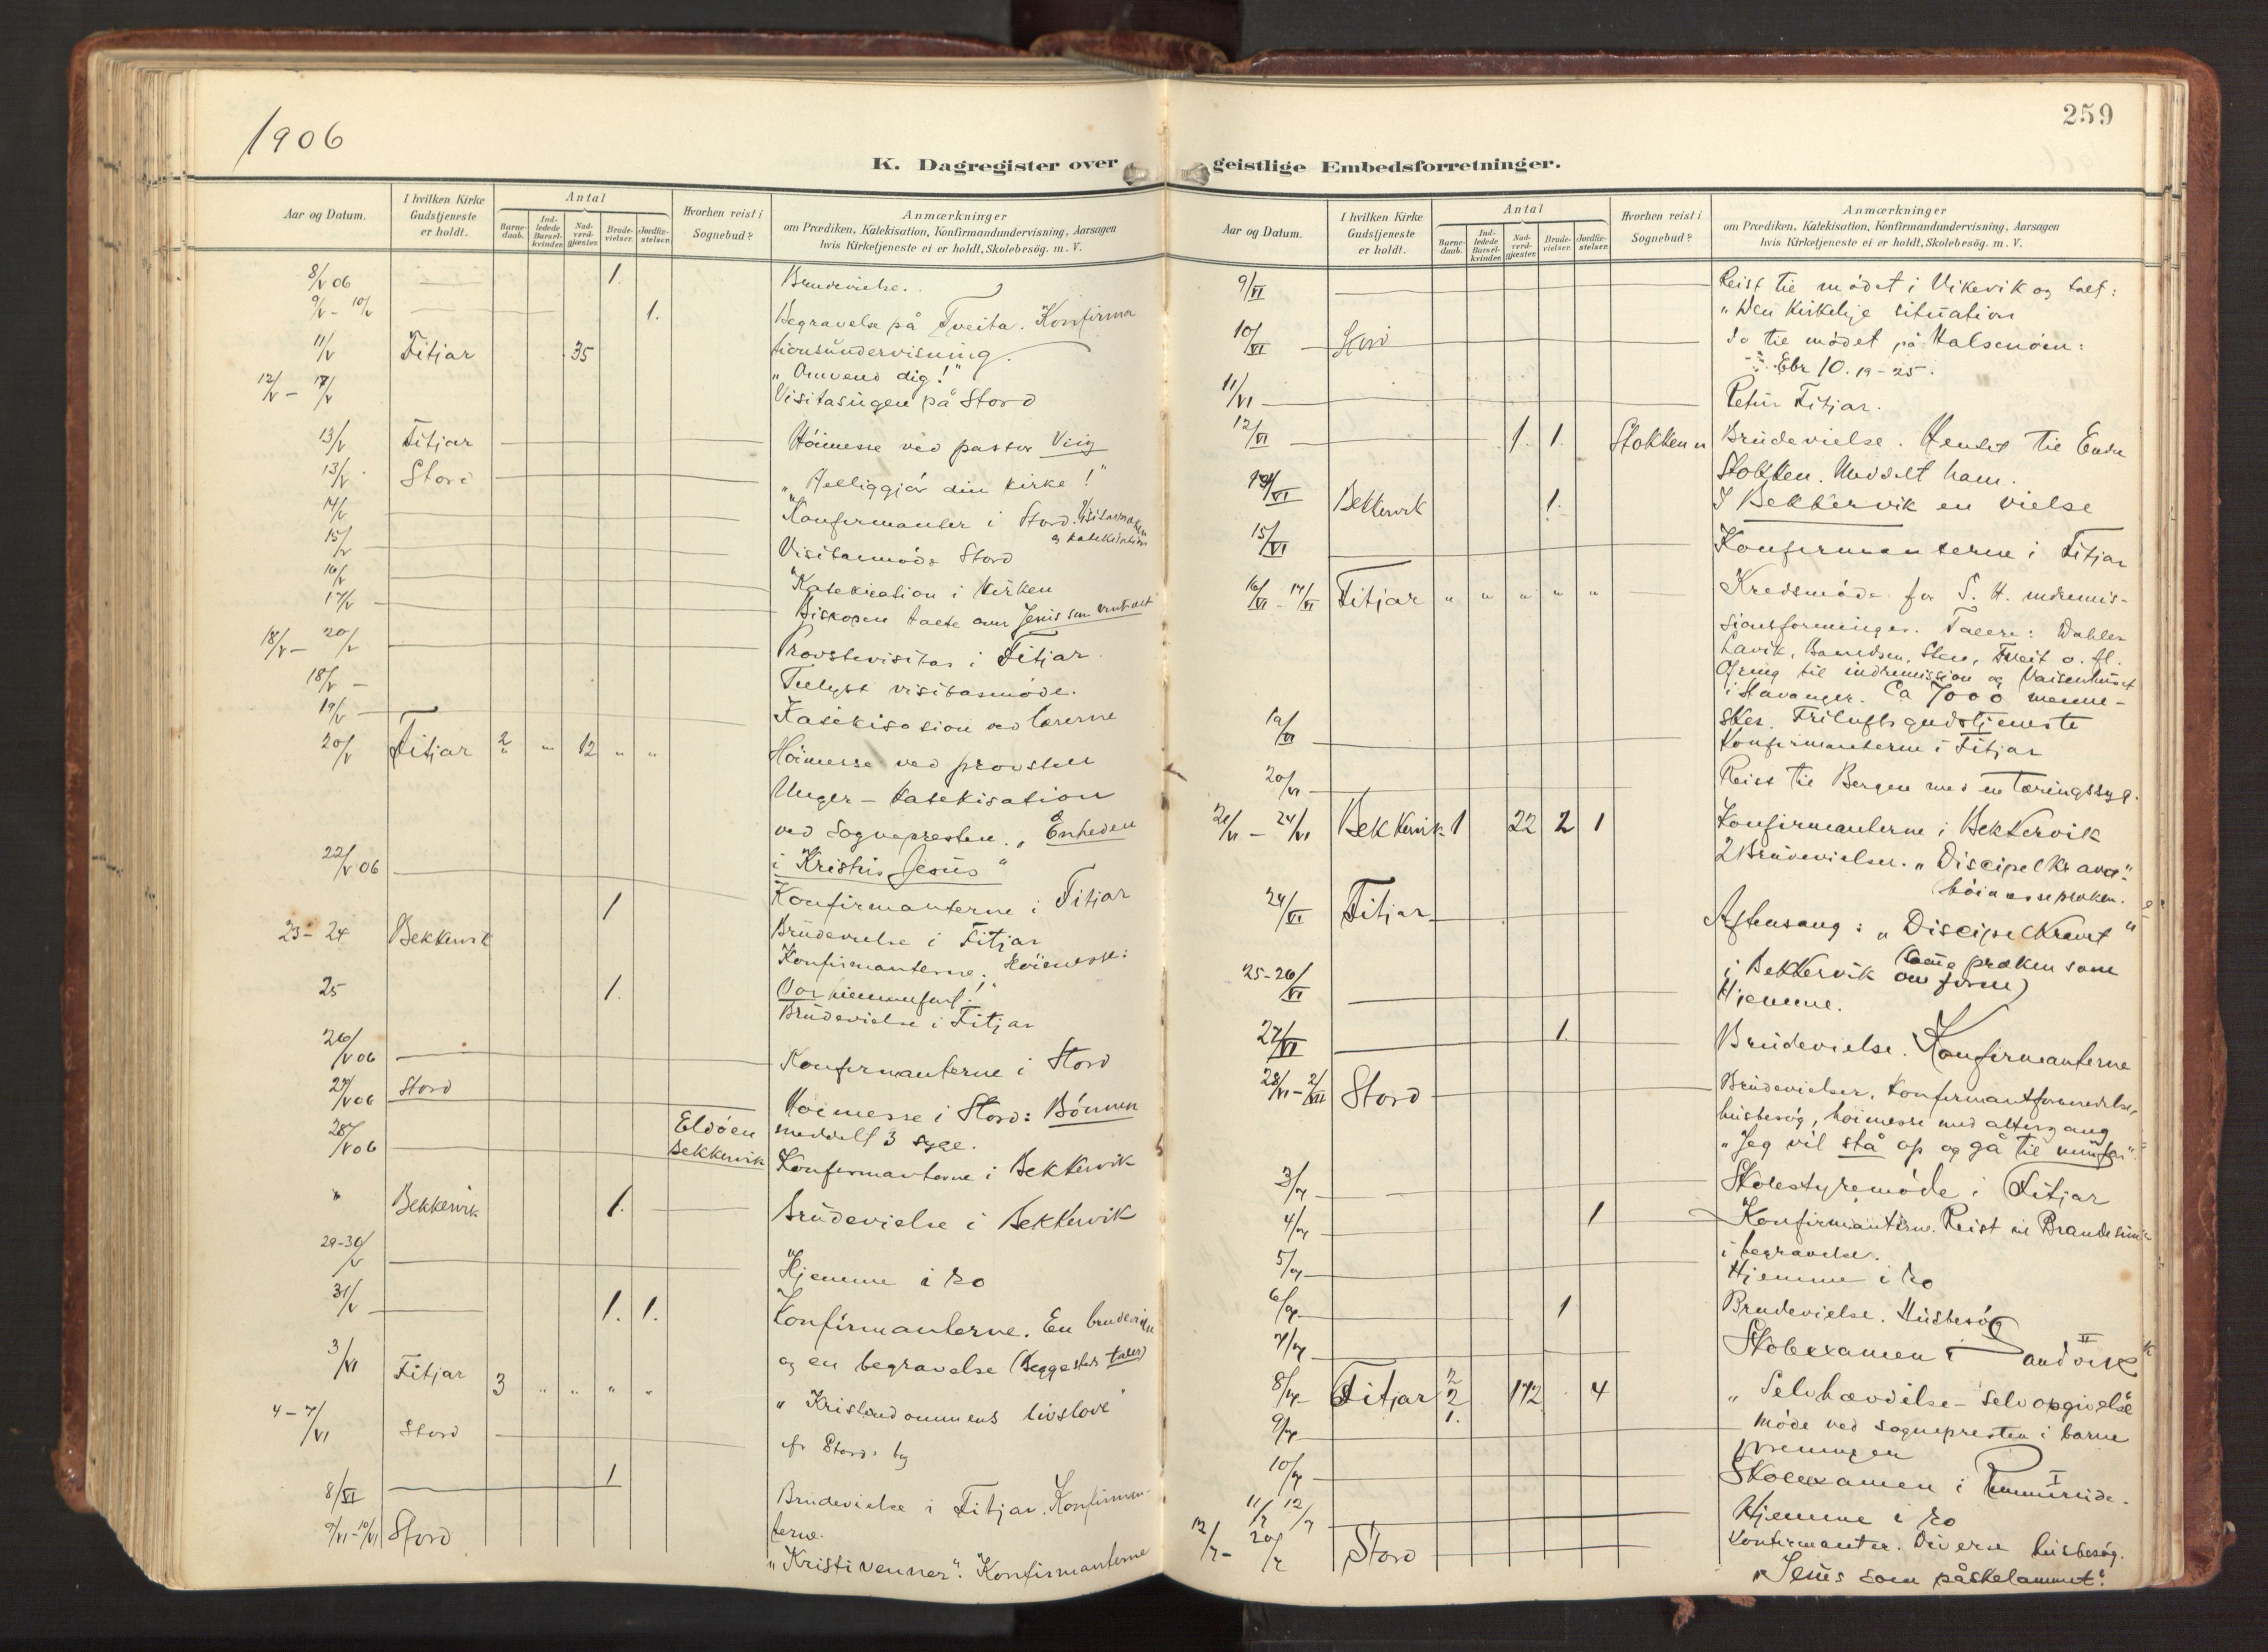 1906
K. Dagregister over
Aar og Datum.
I hvilken Kirke Gudstjeneste er holdt.
Antal
Barne-daab.
Ind-ledede Barsel-kvinder.
Nad-verd-gjæster.
Brude-vielser.
Jordfæ-stelser.
Hvorhen reist i Sognebud?
Anmærkninger
om Prædiken, Katekisation, Konfirmandundervisning, Aarsagen
hvis Kirketjeneste ei er holdt, Skolebesög. m. V.
8/V 06 1. Brudevielse.
9/V - 10/V 1. Begravelse på Tveita. Konfirma
11/V Fitjar 35 tionsundervisning.
"Omvend dig!"
12/V - 17/V Visitasugen på Stord
13/V Fitjar Höimesse ved pastor
13/V Stord "Helliggjör din kirke!"
14/V Konfirmanter i Stord.
og katekisation
15/V Visitasmöde Stord
16/V Katekisation i Kirken
17/V Biskopen talte over Jesus som
18/V - 20/V Provstevisitas i Fitjar.
18/V - Tillyst visitasmöde.
19/V Katekisasion ved lærerne
20/V Fitjar 2 " 12 " " Höimesse ved provsten
Unger - Katekisation
ved Sognepresten. "Enheden
22/V 06 i Kristus Jesus"
1 Konfirmanterne i Fitjar
23 - 24 Bekkervik Brudevielse i Fitjar
Konfirmanterne. Höimesse:
25 1. Vor himmelfart!"
Brudevielse i Fitjar
26/V 06 Konfirmanterne i Stord
27/V 06 Stord Höimesse i Stord: Bönnen
28/V 06 Eldöen meddelt 3 syge.
Bekkervik Konfirmanterne i Bekkervik
" Bekkervik 1. Brudevielse i Bekkervik
29-30/V Hjemme i ro
31/V 1. 1. Konfirmanterne. En brudevielse
og en begravelse (Begge steds taler)
3/VI Fitjar 3 " " " " "Kristendommens livslove"
4 - 7/VI Stord
8/VI 1 Brudevielse i Fitjar. Konfirman-
terne.
9/VI - 10/VI Stord "Kristi venner". Konfirmanterne
259
geistlige Embedsforretninger.
Aar og Datum.
I hvilken Kirke Gudstjeneste er holdt.
Antal
Barne-daab.
Ind-ledede Barsel-kvinder.
Nad-verd-gjæster.
Brude-vielser.
Jordfæ-stelser.
Hvorhen reist i Sognebud?
Anmærkninger
om Prædiken, Katekisation, Konfirmandundervisning, Aarsagen
hvis Kirketjeneste ei er holdt, Skolebesög. m. V.
9/VI Reist til mödet i Vikevik og talt:
"Den kirkelige situation
10/VI Stord Do til mödet på Halsenöen:
Ebr 10. 19-25.
11/VI Retur Fitjar.
12/VI 1. 1. Stokken Brudevielse. Hentet til Endre
Stokken. Meddelt ham.
14/VI Bekkervik 1. I Bekkervik en vielse
15/VI Konfirmanterne i Fitjar
16/VI - 17/VI Fitjar " " " " " Kredsmöde for S. H. indremis-
sionsforeninger. Talere: Wahlen
Lavik, Sten, Tveit o. fl.
Ofring til indremission og Vaisenhuset
i Stavanger. Ca 7000 menne-
sker. Friluftsgudstjeneste
19/VI Konfirmanterne i Fitjar
20/VI Reist til Bergen med en tæringssyg.
21/VI - 24/VI Bekkervik 1 22 2 1 Konfirmanterne i Bekkervik
2 Brudevielser. "Discipelkravet".
höimesseprœken.
24/VI Fitjar Aftensang: "Discipelkravet"
(samme prœken som
25-26/VI i Bekkervik om form)
Hjemme.
27/VI 1. Brudevielse. Konfirmanterne
28/VI - 2/VII Stord Brudevielser, Konfirmantforberedelse,
husbesög, höimesse med altergang
"Jeg vil stå op og gå til min far".
3/VII Skolestyremöde i Fitjar
4/VII 1 Konfirmanterne. Reist til Brandesund
i begravelse.
5/VII Hjemme i ro
6/VII 1 Brudevielse. Husbesög
7/VII Skoleexamen i Sandvik II k
8/VII Fitjar 2/2 172 4 "Selvhævdelse - Selvopgivelse"
9/VII 1. Möde ved sognepresten i barne
foreningen
10/VII Skoleexamen i Rimmereide. I
11/7 12/7 Hjemme i ro
12/7 - 20/7 Stord Konfirmanter. Diverse husbesög.
"Jesus som påskelammet".